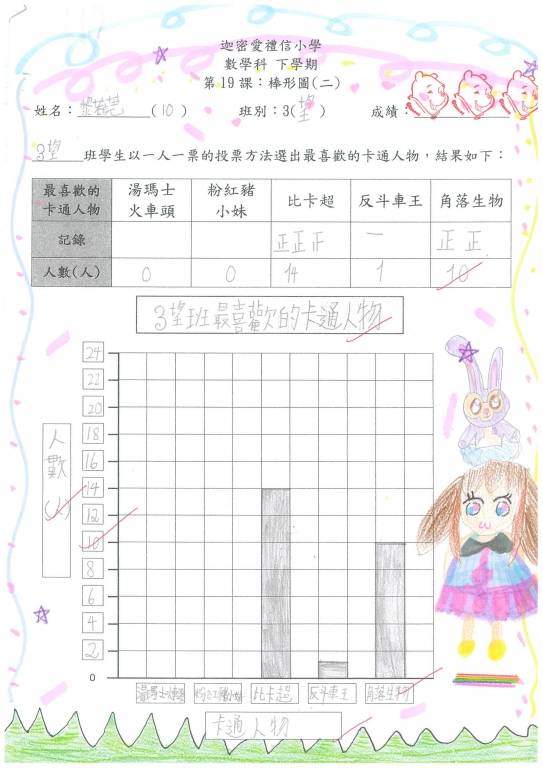 迦密愛禮信小學
數學科 下學期
第19課：棒形圖(二)
姓名： (10) 班別：3(望) 成績：
3望 班學生以一人一票的投票方法選出最喜歡的卡通人物，結果如下：
最喜歡的卡通人物 湯瑪士火車頭 粉紅豬小妹 比卡超 反斗車王 角落生物
記錄 正正正 一 正正
人數(人) 0 0 14 1 10
3望班最喜歡的卡通人物
人數(人)
24
22
20
18
16
14
12
10
8
6
4
2
0
湯瑪士火車頭 粉紅豬小妹 比卡超 反斗車王 角落生物
卡通人物